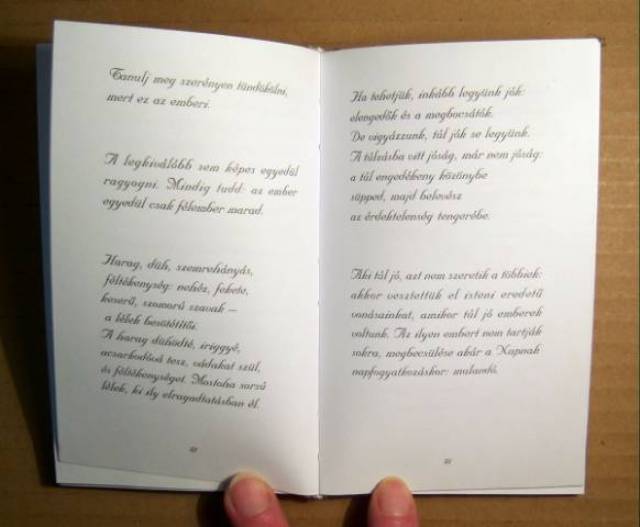 Tanulj meg szerényen tündökölni,
mert ez az emberi.
A legkiválóbb sem képes egyedül
ragyogni. Mindig tudd: az ember
egyedül csak félember marad.
Harag, düh, szemrehányás,
féltékenység: nehéz, fekete,
keserű, szomorú szavak –
a lélek besötétítői.
A harag dühödté, iriggyé,
acsarkodóvá tesz, vádakat szül,
és féltékenységet. Mostoha sorsú
lélek, ki ily elragadtatásban él.
Ha tehetjük, inkább legyünk jók:
elengedők és a megbocsátók.
De vigyázzunk, túl jók se legyünk.
A túlzásba vitt jóság, már nem jóság:
a túl engedékeny közönybe
süpped, majd belevész
az érdektelenség tengerébe.
Aki túl jó, azt nem szeretik a többiek:
akkor vesztettük el isteni eredetű
vonásainkat, amikor túl jó emberek
voltunk. Az ilyen embert nem tartják
sokra, megbecsülése akár a Napnak
napfogyatkozáskor: mulandó.